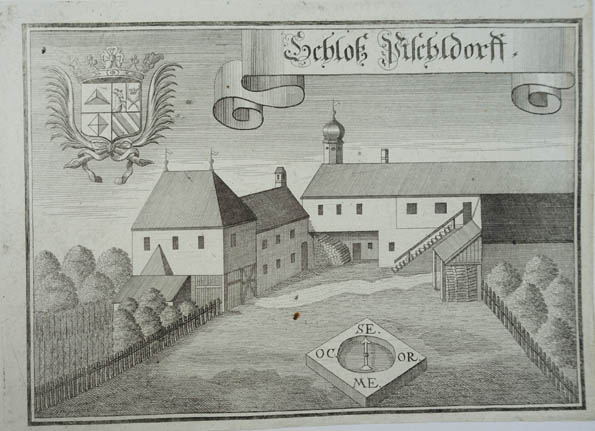 Schloß Pischldorff.
SE.
OC. OR.
ME.